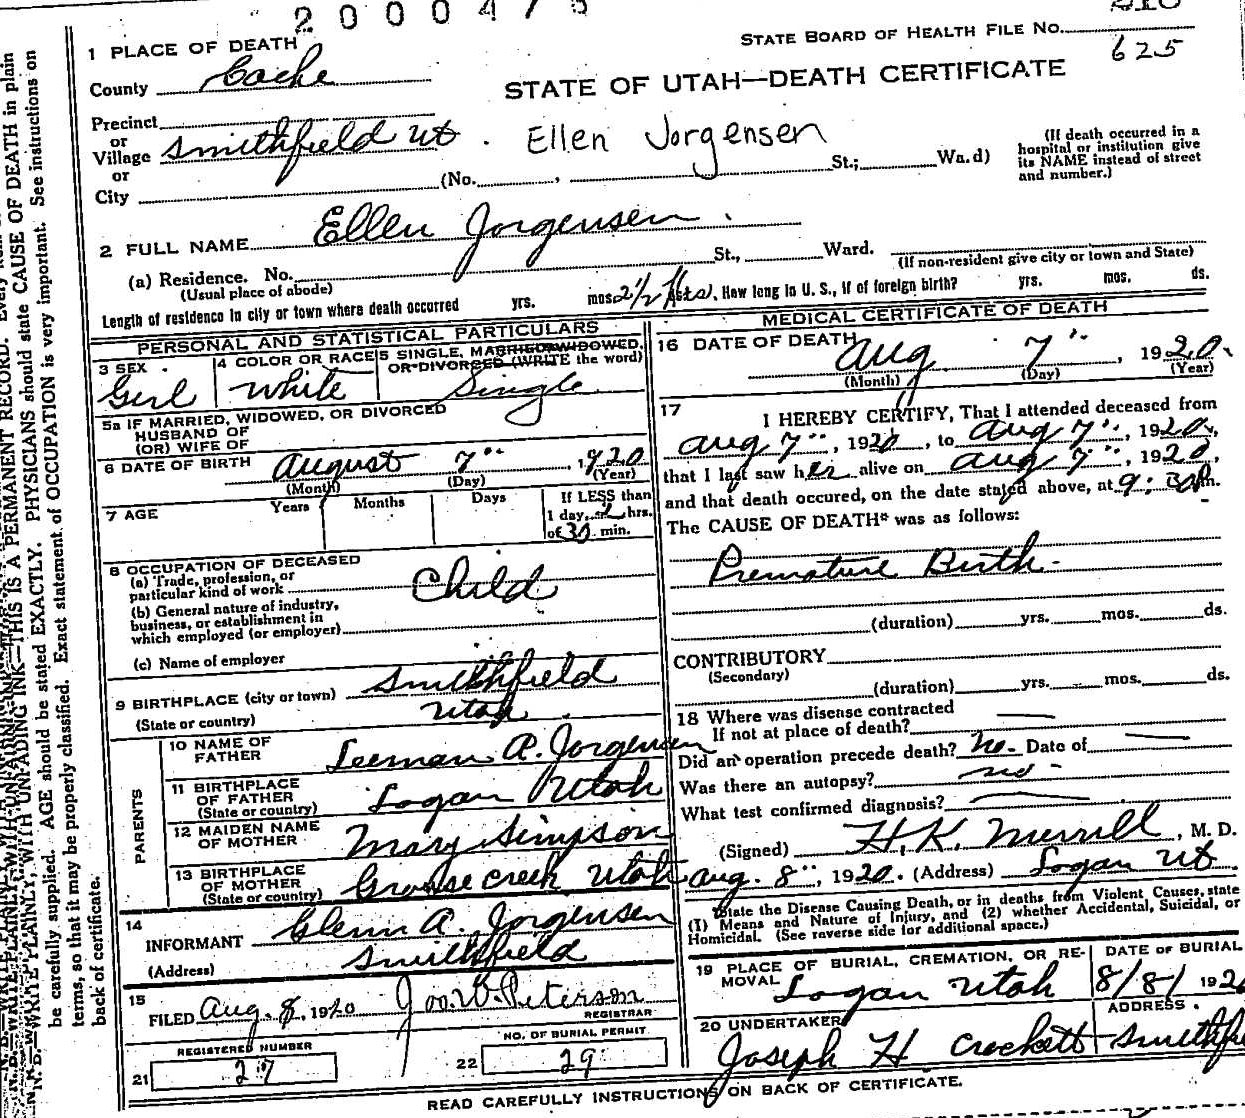 2 0 0 0 4 7 5
1 PLACE OF DEATH
STATE BOARD OF HEALTH FILE NO.
625
County Cache
STATE OF UTAH—DEATH CERTIFICATE
Precinct
or
Village Smithfield Ut. Ellen Jorgensen
or
City (No. , St.; Wa.d)
(If death occurred in a
hospital or institution give
its NAME instead of street
and number.)
2 FULL NAME Ellen Jorgensen.
(a) Residence. No. St., Ward.
(Usual place of abode)
(If non-resident give city or town and State)
Length of residence in city or town where death occurred yrs. mos. 2½ How long in U. S., if of foreign birth? yrs. mos. ds.
PERSONAL AND STATISTICAL PARTICULARS
3 SEX
Girl
4 COLOR OR RACE
White
5 SINGLE, MARRIED, WIDOWED,
OR DIVORCED (WRITE the word)
Single
5a IF MARRIED, WIDOWED, OR DIVORCED
HUSBAND OF
(OR) WIFE OF
6 DATE OF BIRTH August 7th, 1920
(Month) (Day) (Year)
7 AGE Years Months Days
If LESS than
1 day, 2 hrs.
of 30 min.
8 OCCUPATION OF DECEASED
(a) Trade, profession, or
particular kind of work Child
(b) General nature of industry,
business, or establishment in
which employed (or employer)
(c) Name of employer
9 BIRTHPLACE (city or town) Smithfield
(State or country) Utah
PARENTS
10 NAME OF
FATHER Leeman A. Jorgensen
11 BIRTHPLACE
OF FATHER
(State or country) Logan Utah
12 MAIDEN NAME
OF MOTHER Mary Simpson
13 BIRTHPLACE
OF MOTHER
(State or country) Grouse creek Utah
14
INFORMANT Glenn A. Jorgensen
(Address) Smithfield
15
FILED Aug. 8, 1920 Peterson
REGISTRAR
REGISTERED NUMBER
21 27
NO. OF BURIAL PERMIT
22 29
MEDICAL CERTIFICATE OF DEATH
16 DATE OF DEATH Aug 7th, 1920.
(Month) (Day) (Year)
17
I HEREBY CERTIFY, That I attended deceased from
Aug 7th, 1920, to Aug 7th, 1920,
that I last saw her alive on Aug 7th, 1920,
and that death occured, on the date stated above, at 9:30 m.
The CAUSE OF DEATH* was as follows:
Premature Birth.
(duration) yrs. mos. ds.
CONTRIBUTORY
(Secondary)
(duration) yrs. mos. ds.
18 Where was disease contracted
If not at place of death?
Did an operation precede death? No. Date of
Was there an autopsy? no.
What test confirmed diagnosis?
(Signed) H. K. Merrill, M. D.
Aug. 8th, 1920. (Address) Logan Ut
*State the Disease Causing Death, or in deaths from Violent Causes, state
(1) Means and Nature of Injury, and (2) whether Accidental, Suicidal, or
Homicidal. (See reverse side for additional space.)
19 PLACE OF BURIAL, CREMATION, OR RE-
MOVAL Logan Utah
DATE OF BURIAL
8/8/ 192
20 UNDERTAKER
Joseph H Crockett
ADDRESS
READ CAREFULLY INSTRUCTIONS ON BACK OF CERTIFICATE.
N. B. WRITE PLAINLY, WITH UNFADING INK—THIS IS A PERMANENT RECORD. Every
be carefully supplied. AGE should be stated EXACTLY. PHYSICIANS should state CAUSE OF DEATH in plain
terms, so that it may be properly classified. Exact statement of OCCUPATION is very important. See instructions on
back of certificate.